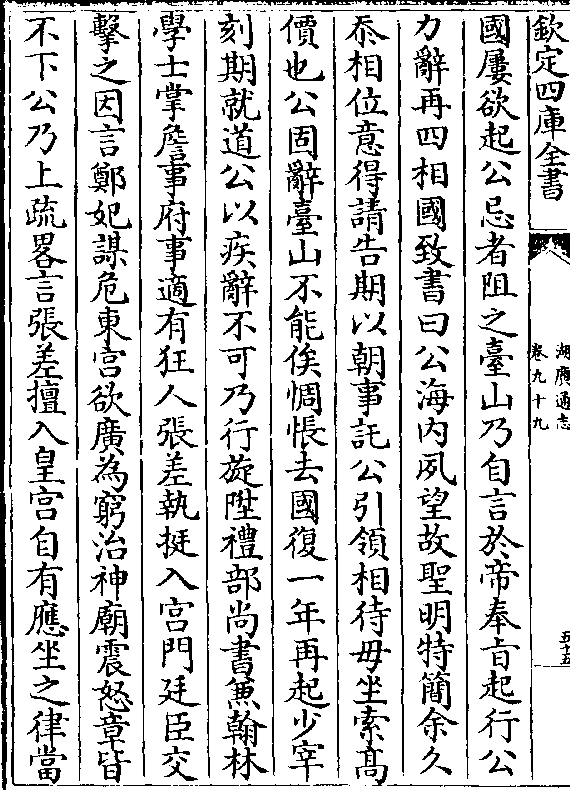 欽定四庫全書
湖廣通志
卷九十九
五十五
國屢欲起公忌者阻之臺山乃自言於帝奉旨起行公
力辭再四相國致書曰公海内夙望故聖明特簡余久
忝相位意得請告期以朝事託公引領相待毋坐索髙
價也公固辭臺山不能俟惆悵去國復一年再起少宰
刻期就道公以疾辭不可乃行旋陞禮部尚書兼翰林
學士掌詹事府事適有狂人張差執挺入宫門廷臣交
擊之因言鄭妃謀危東宫欲廣為窮治神廟震怒章皆
不下公乃上疏畧言張差擅入皇宫自有應坐之律當